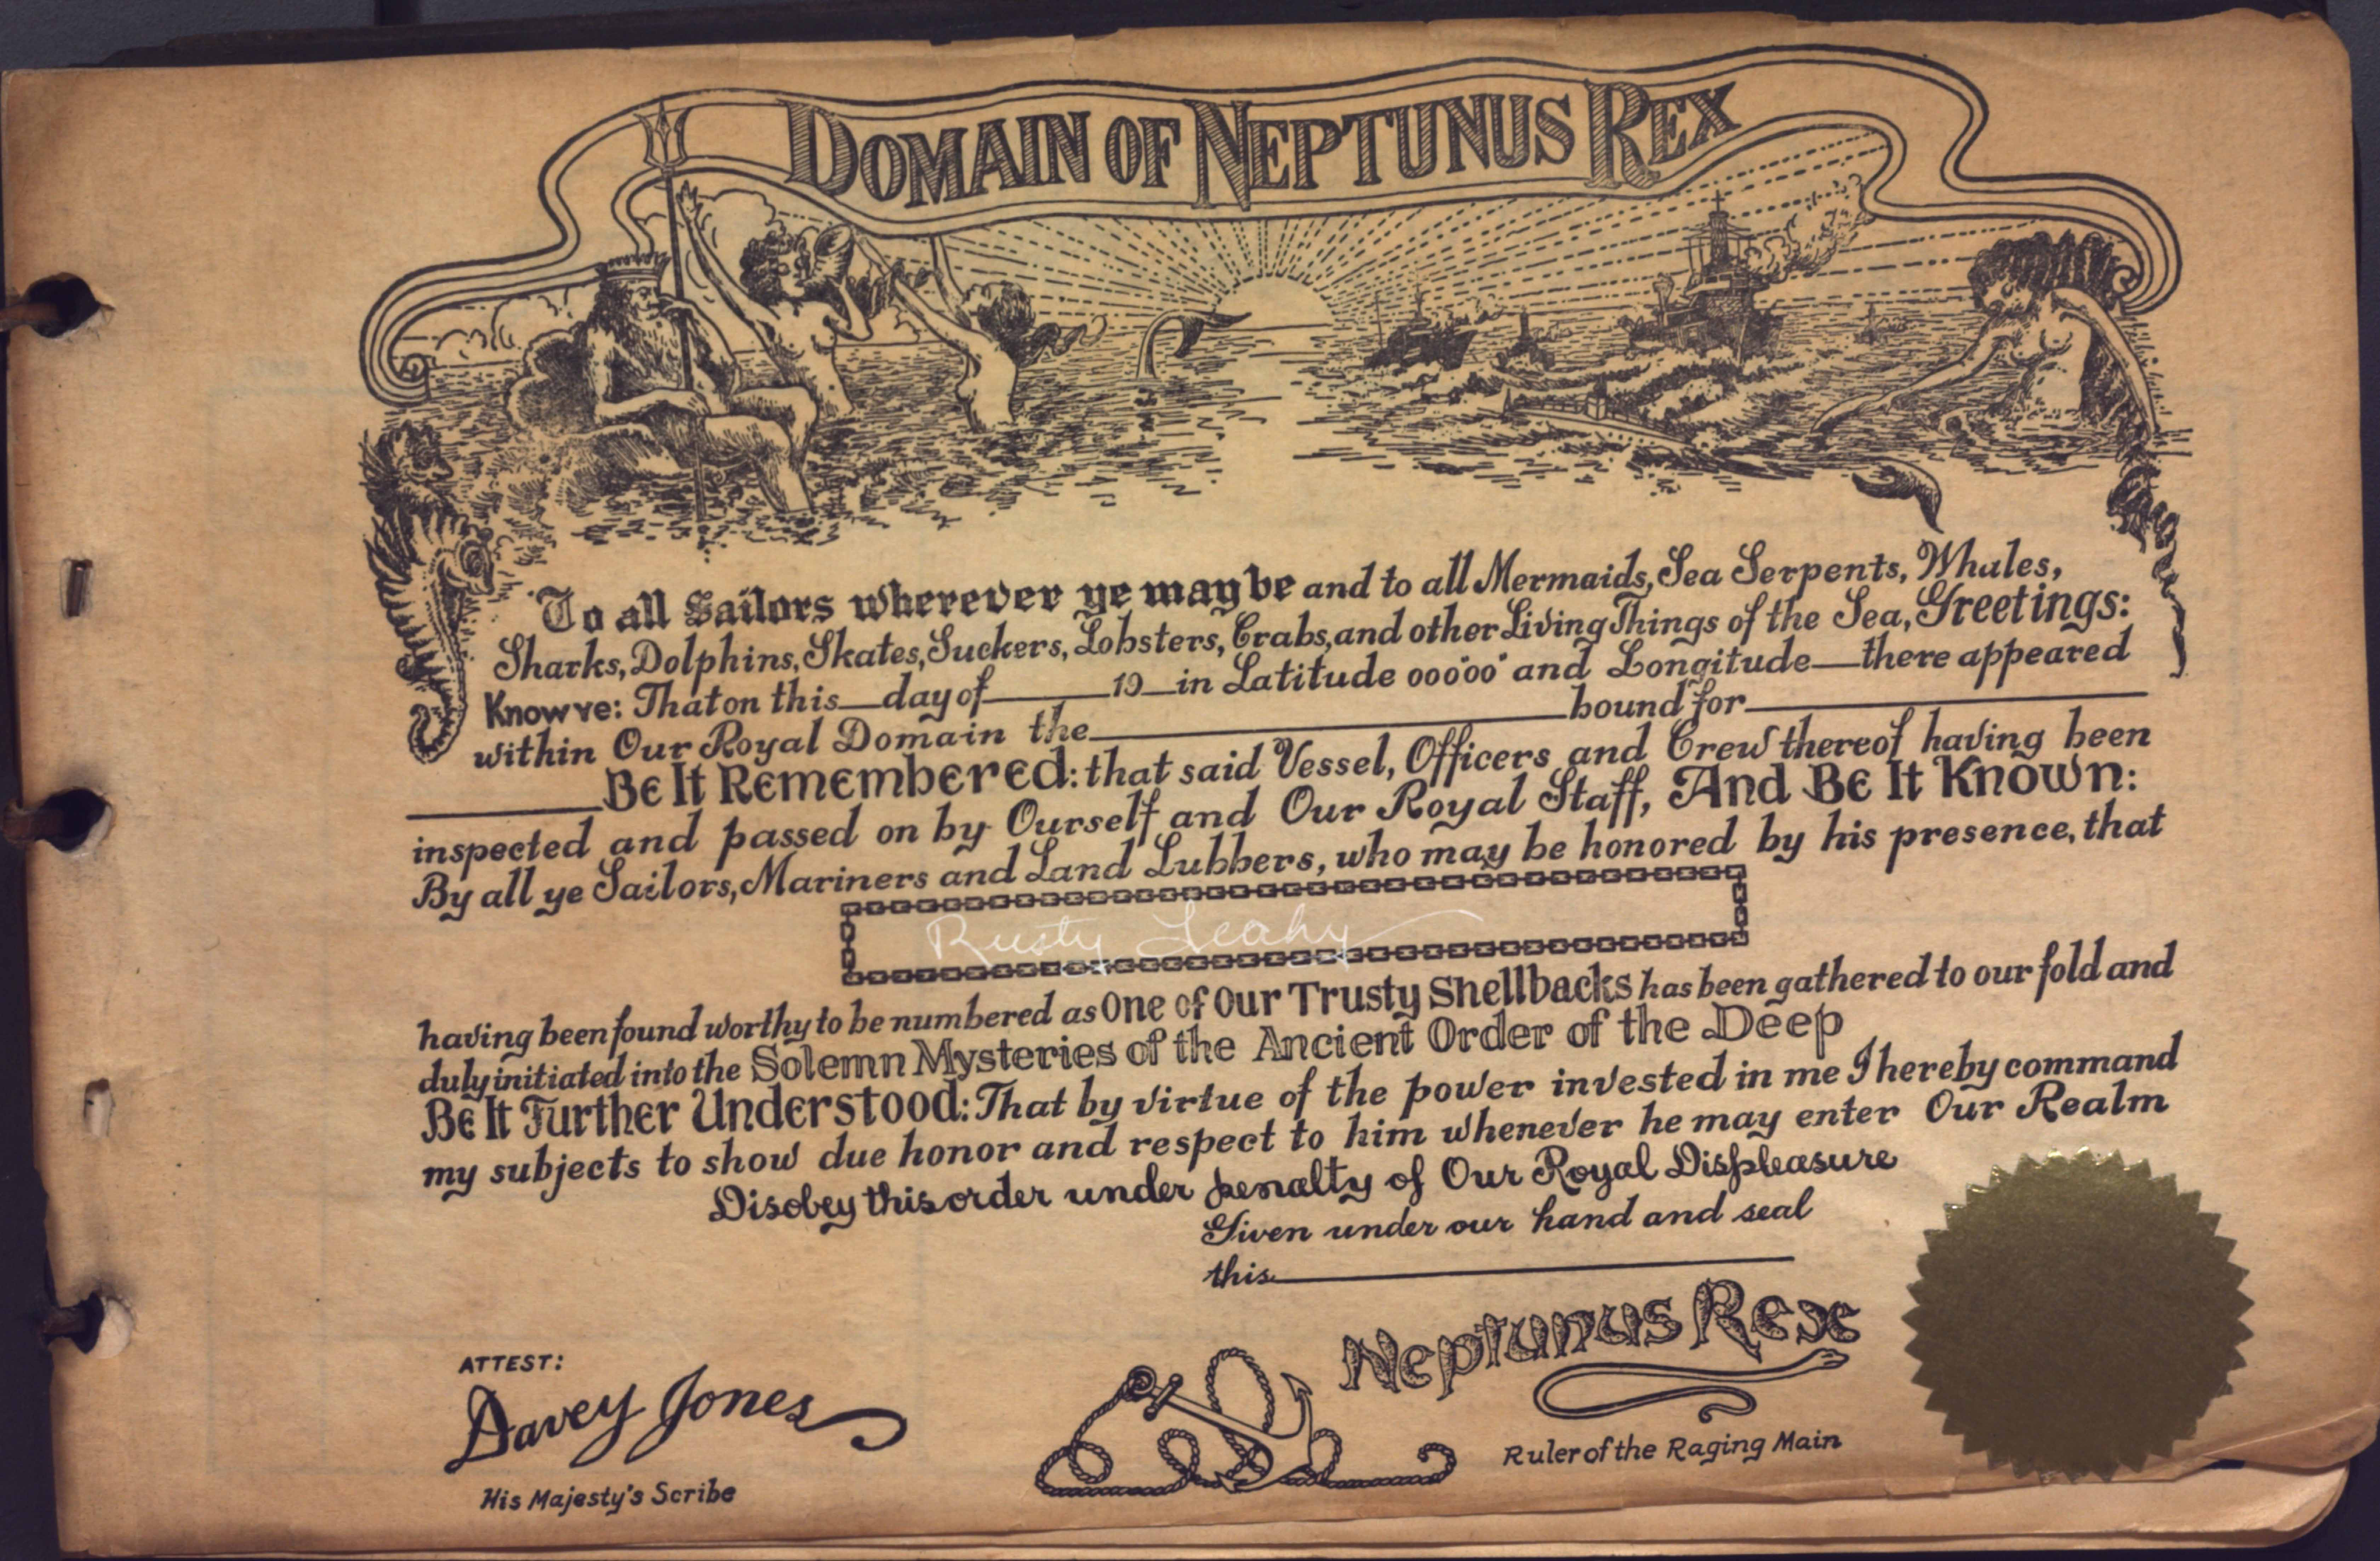 DOMAIN OF NEPTUNUS REX
To all Sailors wherever ye may be and to all Mermaids, Sea Serpents, Whales,
Sharks, Dolphins, Skates, Suckers, Lobsters, Crabs, and other Living Things of the Sea, Greetings:
Know ye: That on this__day of______19__in Latitude 00°00'00" and Longitude___there appeared
within Our Royal Domain the______bound for______
______Be It Remembered: that said Vessel, Officers and Crew thereof having been
inspected and passed on by Ourself and Our Royal Staff, And Be It Known:
By all ye Sailors, Mariners and Land Lubbers, who may be honored by his presence, that
Rusty Leahy
having been found worthy to be numbered as One of Our Trusty Shellbacks has been gathered to our fold and
duly initiated into the Solemn Mysteries of the Ancient Order of the Deep
Be It Further Understood: That by virtue of the power invested in me I hereby command
my subjects to show due honor and respect to him whenever he may enter Our Realm
Disobey this order under penalty of Our Royal Displeasure
Given under our hand and seal
this______
ATTEST:
Davey Jones
His Majesty's Scribe
Neptunus Rex
Ruler of the Raging Main